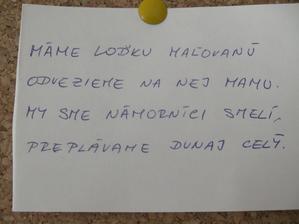 MÁME LOĎKU MAĽOVANÚ
ODVEZIEME NA NEJ MAMU.
MY SME NÁMORNÍCI SMELÍ,
PREPLÁVAME DUNAJ CELÝ.